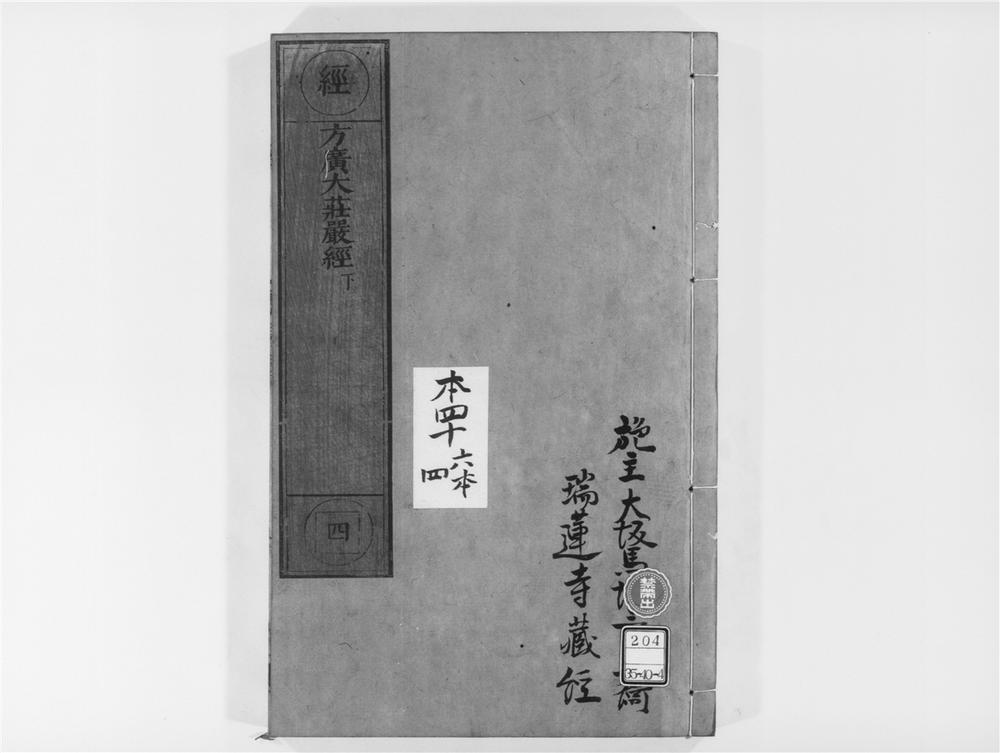 施主大坂
瑞蓮寺藏経
禁帶出
204
35-40-4
本四十
六本
四
經
方廣大莊嚴經 下
四